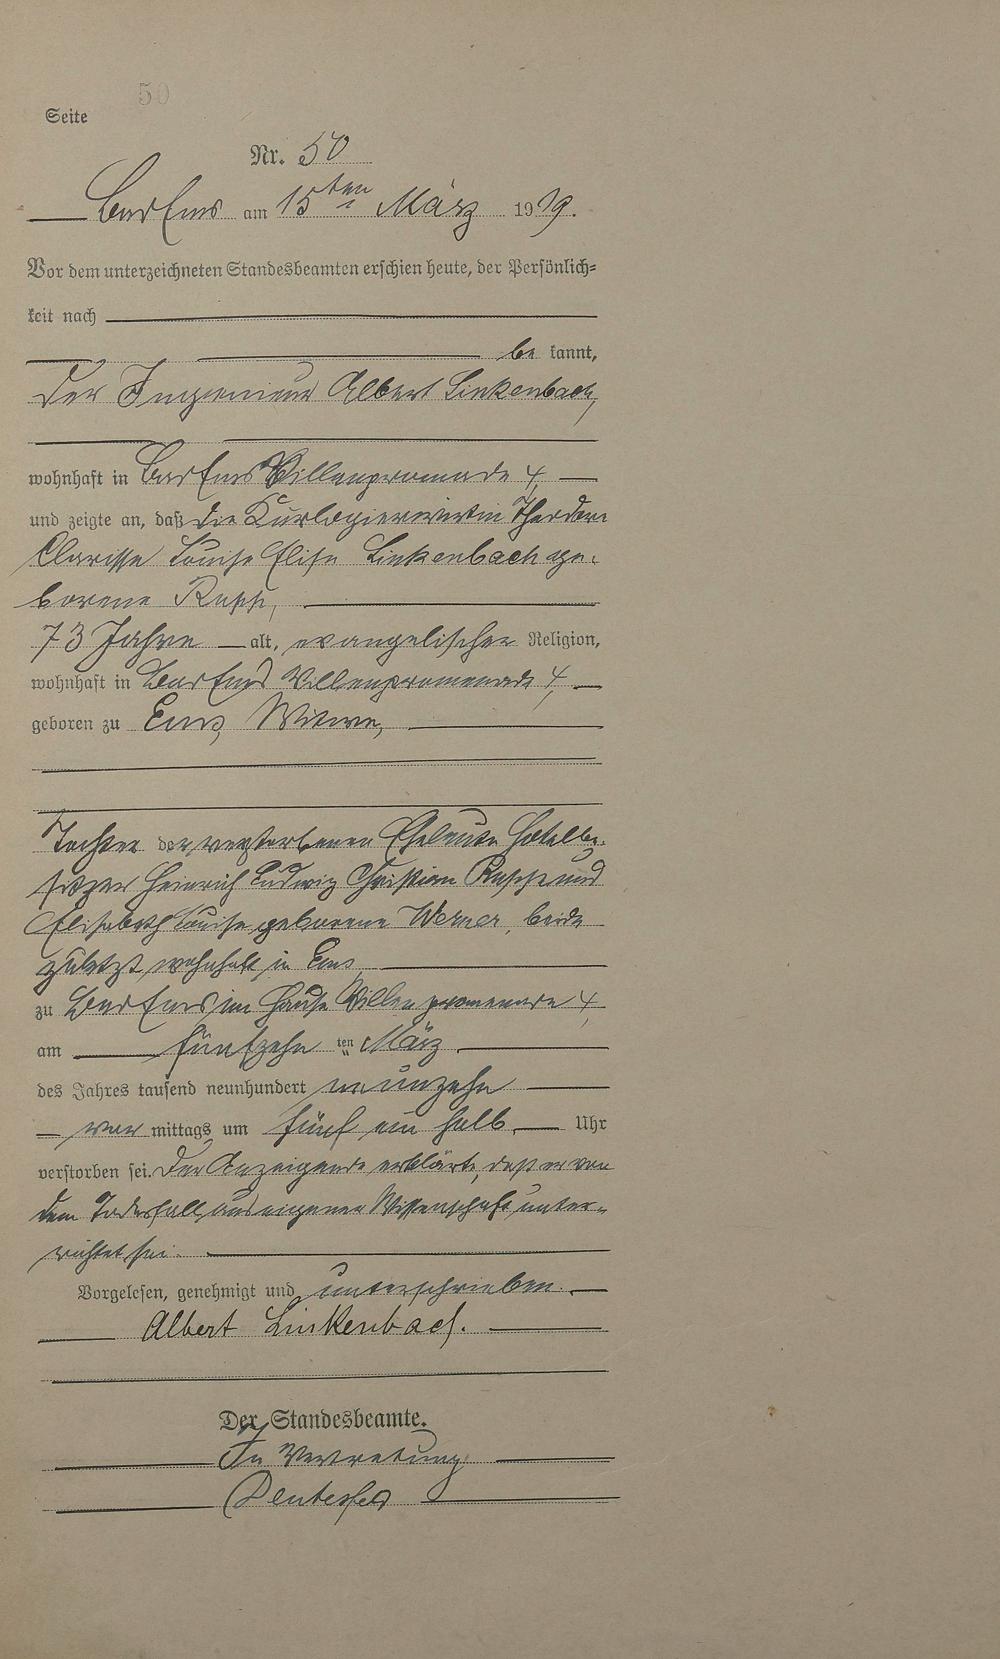 50
Seite
Nr. 50
Bad Ems am 15ten März 1919.
Vor dem unterzeichneten Standesbeamten erschien heute, der Persönlich=
keit nach
be kannt,
der Ingenieur Albert Linkenbach,
wohnhaft in Bad Ems Villenpromenade 4,
und zeigte an, daß die Kurlogierwirtin Theodora
Clarisse Louise Elise Linkenbach ge-
borene Rupp,
73 Jahre alt, evangelischer Religion,
wohnhaft in Bad Ems Villenpromenade 4,
geboren zu Ems, Witwe,
Tochter der verstorbenen Eheleute Hotelbe-
sitzer Heinrich Ludwig Christian Rupp und
Elisabeth Louise geborene Werner, beide
zuletzt wohnhaft in Ems
zu Bad Ems im Hause Villenpromenade 4,
am fünfzehn ten März
des Jahres tausend neunhundert neunzehn
vor mittags um fünf ein halb Uhr
verstorben sei. Der Anzeigende erklärte, daß er von
dem Todesfall aus eigener Wissenschaft unter-
richtet sei.
Vorgelesen, genehmigt und unterschrieben.
Albert Linkenbach.
Der Standesbeamte.
In Vertretung